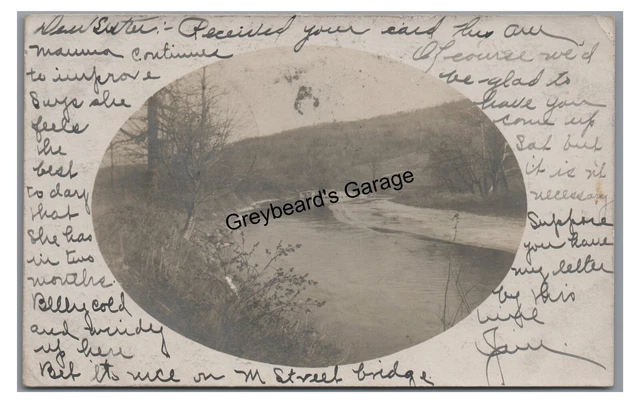 Dear Sister:- Received your card this
mamma continues
to improve
Says she
feels
the
best
to day
that
She has
in two
months.
cold
and windy
up here
Bet its nice on M Street bridge
Of course we'd
be glad to
have you
come up
Sat but
it is n't
necessary
Suppose
you have
my letter
by this
time
Greybeard's Garage